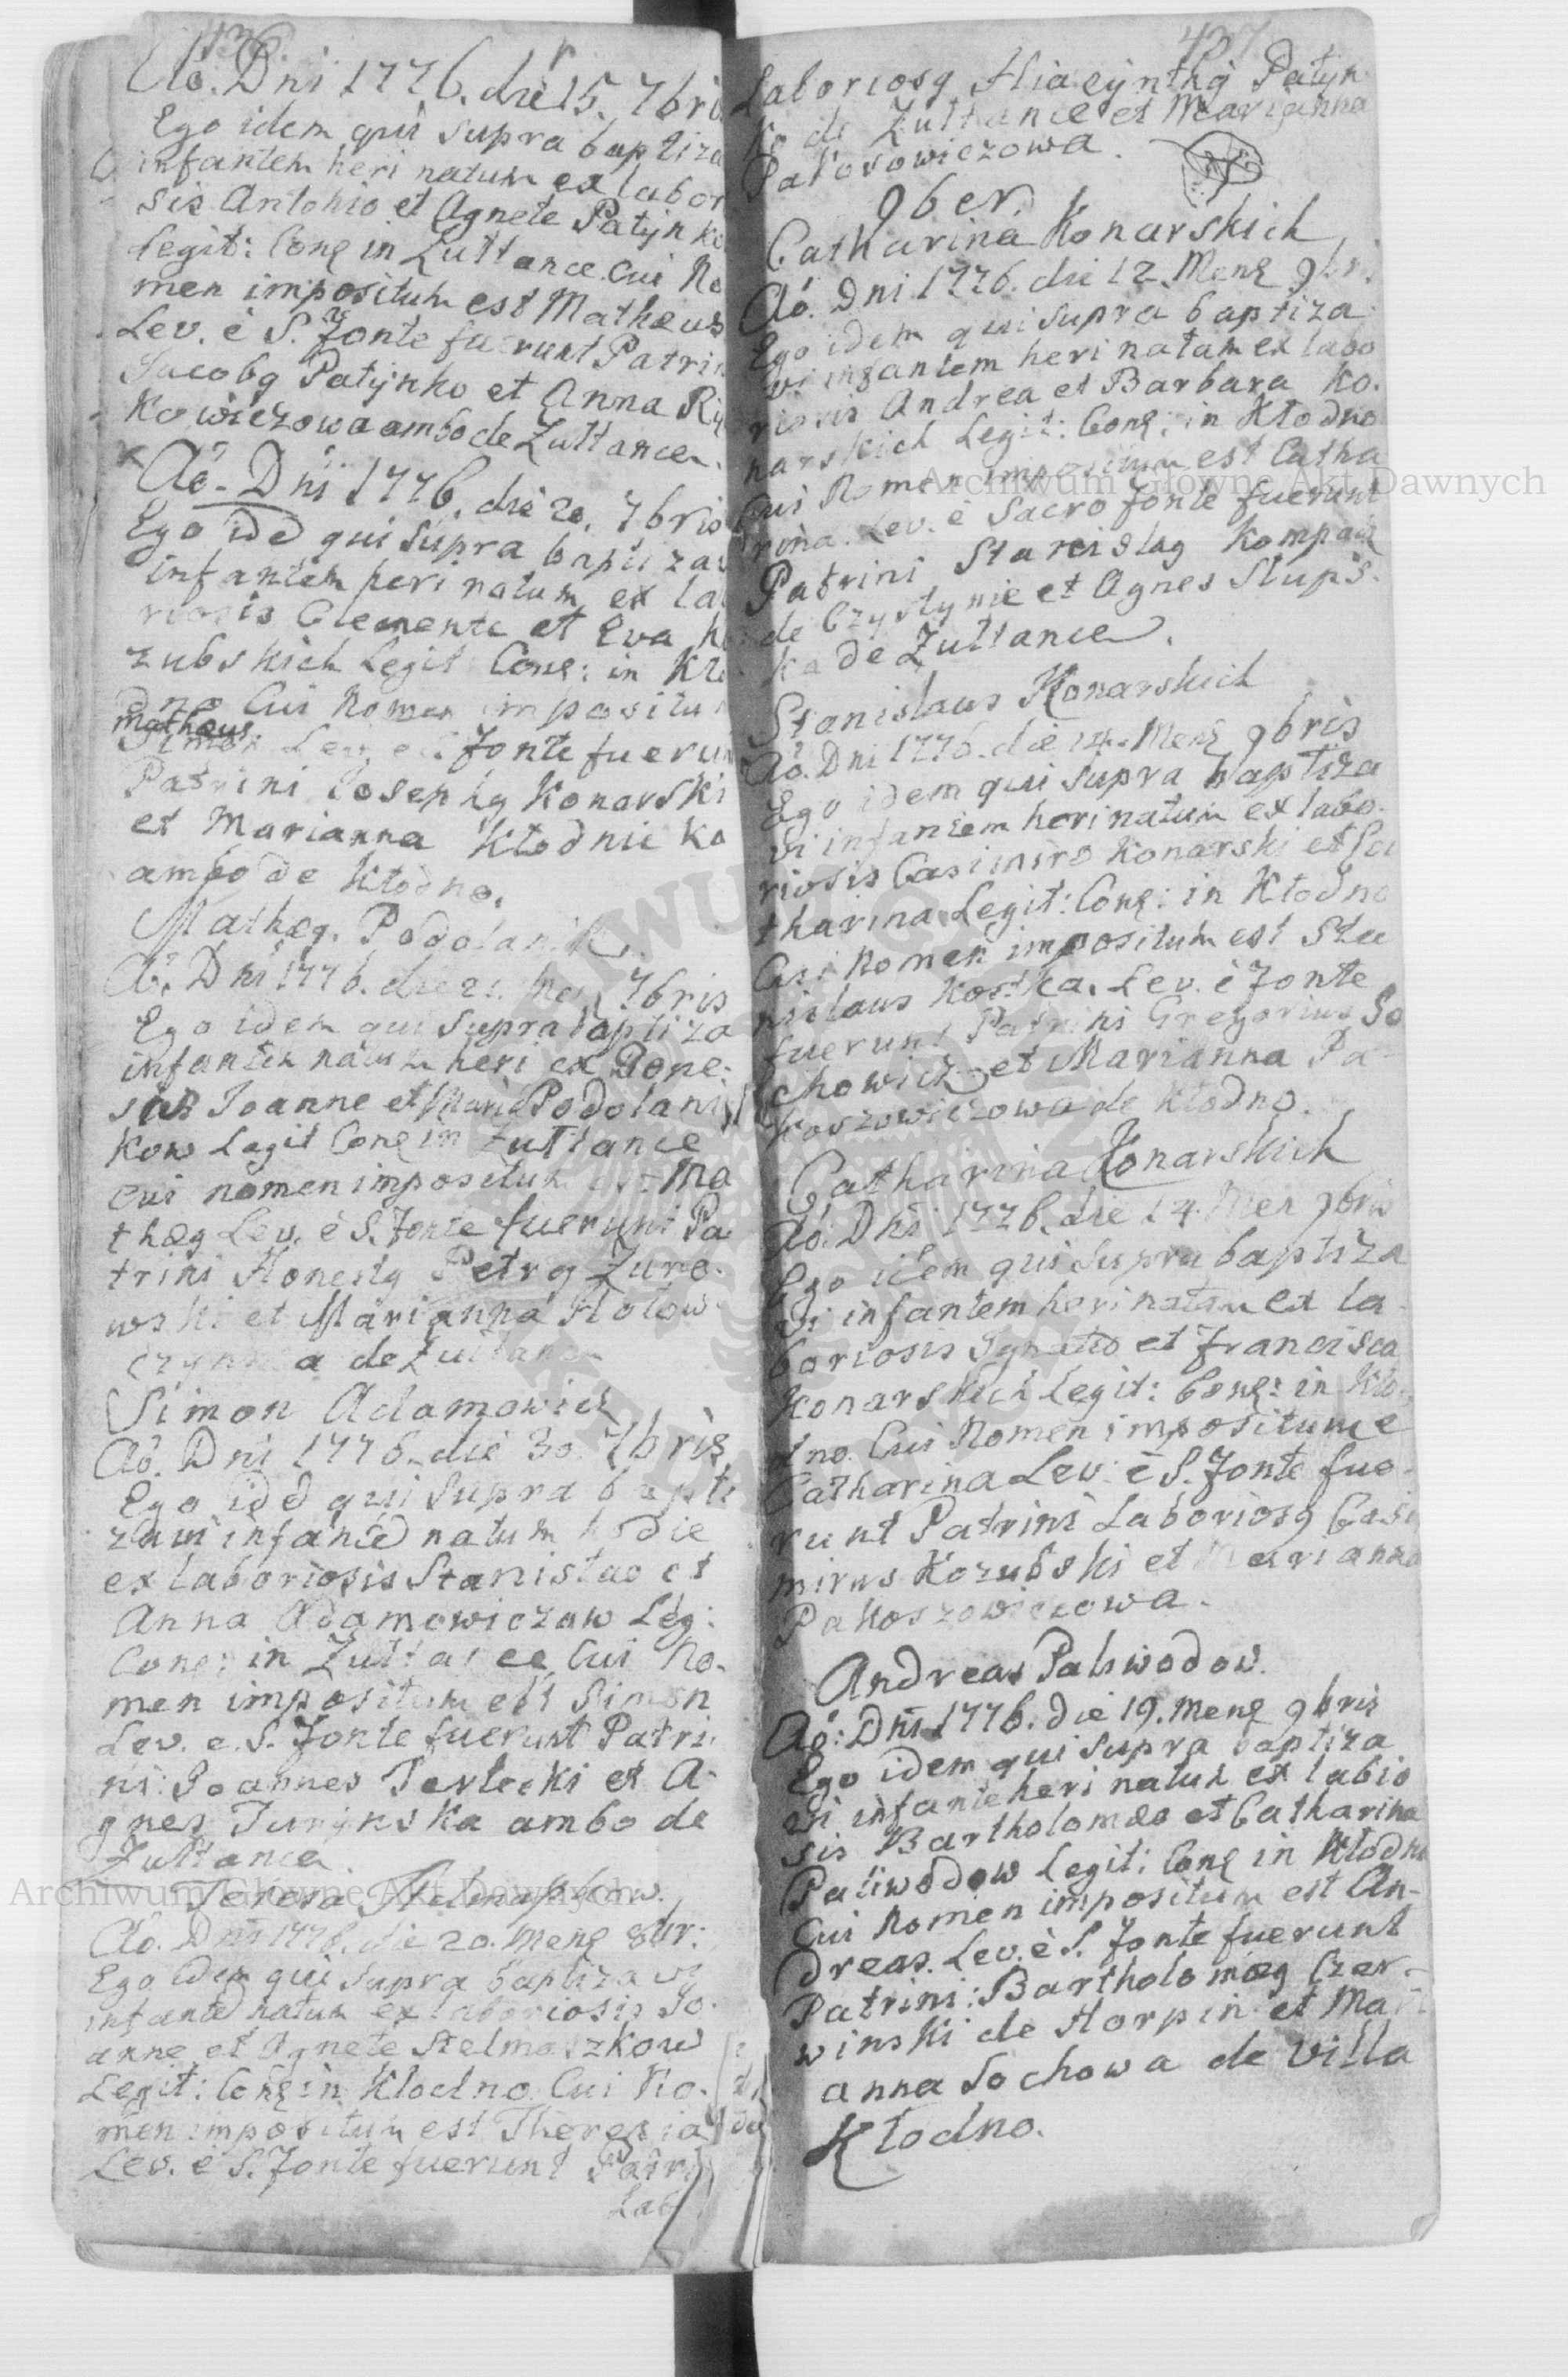 436
Aö. Dni 1776. die 15. 7bri
Ego idem qui supra baptiza
infantem heri natum ex labor
sis Antonio et Agnete Patynko
Legit: Conɋ in Zuttance. Cui No
men impositum est Mathæus
Lev. è S. Fonte fuerunt Patrin
Jacobɋ Patynko et Anna Ry
Kowiczowa ambo de Zuttance.
Aö. Dni 1776. die 20. 7bris
Ego idē qui supra baptizav
infantem heri natum ex la
riosis Clemente et Eva Ko
zubskich Legit Conɋ: in Kło
dno Cui Nomen impositu
Mathæus.
Simon Lev. è S. Fonte fuerun
Patrini Josephɋ Konarski
et Marianna Kłodnicka
ambo de Kłodno.
Mathæɋ. Podolanik.
Aö. Dni 1776. die 21. Men. 7bris
Ego idem qui supra baptiza
infantem natum heri ex Hone:
stis Joanne et Maria Podolani
kow Legit Conɋ in Zuttance
cui nomen impositum est Ma
thæɋ Lev. è S. Fonte fuerunt Pa
trini Honestɋ Petrɋ Zuro.
wski et Marianna Hołow.
czynska de Zuttance
Simon Adamowicz
Aö. Dni 1776. die 30. 7bris
Ego idē qui supra bapti
zavi infantē natum hodie
ex laboriosis Stanislao et
Anna Adamowiczow Leg:
Conɋ: in Zuttance Cui No.
men impositum est Simon
Lev. e. S. Fonte fuerunt Patri.
ni: Joannes Terlecki et A-
gnes Turynska ambo de
Zuttance.
Teresa Stelmaszkow.
Aö. Dni 1776. die 20. Menɋ 8br:
Ego idem qui supra baptizavi
infantē natum ex laboriosis Jo.
anne et Agnete Stelmaszkow
Legit: Conɋ in Kłodno Cui No.
men impositum est Theresia
Lev. è S. Fonte fuerunt Patri
Lab
437
Laboriosɋ Hiacynthɋ Patyn
ko de Zuttance et Marianna
Pakosowiczowa.
9ber.
Catharina Konarskich
Aö. Dni 1776. die 12. Menɋ 9br.
Ego idem qui supra baptiza
vi infantem heri natam ex labo
riosis Andrea et Barbara Ko.
narskich Legit: Conɋ: in Kłodno
Cui Nomen impositum est Catha
rina. Lev. è Sacro fonte fuerunt
Patrini Stanislaɋ Kompacz
de Czystynie et Agnes Slups.
ka de Zuttance.
Stanislaus Konarskich
Aö. Dni 1776. die 14. Menɋ 9bris
Ego idem qui supra baptiza
vi infantem heri natum ex labo.
riosis Casimiro Konarski et Ca
tharina Legit: Conɋ: in Kłodno
Cui Nomen impositum est Sta
nislaus Kostka. Lev. è Fonte
fuerunt Patrini Gregorius So
chowicz et Marianna Pa-
koszowiczowa de Kłodno.
Catharina Konarskich
Aö: Dni 1776. die 14. Men 9bris
Ego idem qui supra baptiza
vi infantem heri natam ex la
boriosis Ignatio et Francisca
Konarskich Legit: Conɋ: in Kło
dno. Cui Nomen impositum e
Catharina Lev: è S. Fonte fue.
runt Patrini Laboriosɋ Casi
mirus Kozubski et Marianna
Pakoszowiczowa.
Andreas Paliwodow.
Aö: Dni 1776. die 19. Menɋ 9bris
Ego idem qui supra baptiza
vi infantē heri natum ex labio
sis Bartholomæo et Catharina
Paliwodow Legit: Conɋ in Kłodno
Cui Nomen impositum est An-
dreas. Lev. è S. Fonte fuerunt
Patrini: Bartholomæɋ Czer-
winski de Horpin et Mari
anna Sochowa de Villa
Kłodno.
Archiwum Główne Akt Dawnych
Archiwum Główne Akt Dawnych